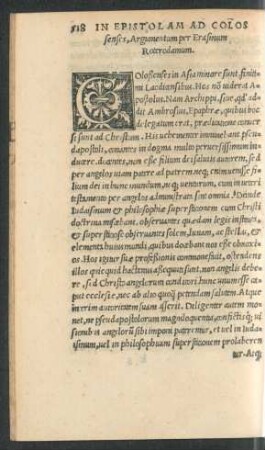 518 IN EPISTOLAM AD COLOS
senses, Argumentum per Erasmum
Roterodamum.
COlossenses in Asia minore sunt finitimi
Laodicensibus. Hos nō uiderat A
postolus. Nam Archippi, siue, qđ ad
didit Ambrosius, Epaphræ, quibus hoc
delegatum erat, prædicatione conuer
si sunt ad Christum. His uehementer imminebant pseud
apostoli, conantes in dogma multo perniciosissimum in
ducere. docentes, non esse filium dei salutis autorem, sed
per angelos uiam patere ad patrem. neq; enim uenisse fi
lium dei in hunc mundum, neq; uenturum, cum in ueteri
testamento per angelos administrata sint omnia. Deinde
Iudaismum & philosophiæ superstitionem cum Christi
doctrina miscebant, obseruantes quædam legis instituta,
& superstitiose obseruantes solem, lunam, ac stellas, &
elementa huius mundi, quibus docebant nos esse obnoxios.
Hos igitur suæ professionis commonefacit, ostendens
illos quicquid hactenus assequuti sint, non angelis debere,
sed Christo angelorum conditori, hunc unum esse ca
put ecclesiæ, nec ab alio quoq; petendam salutem. Atque
interim autoritatem suam asserit. Diligenter autem mo
net, ne pseudapostolorum magniloquentia, confictisq; ui
sionib. et angelorū sibi imponi paterentur, et uel in Iuda
ismum, uel in philosophicam superstitionem prolaberen
tur. Atq;